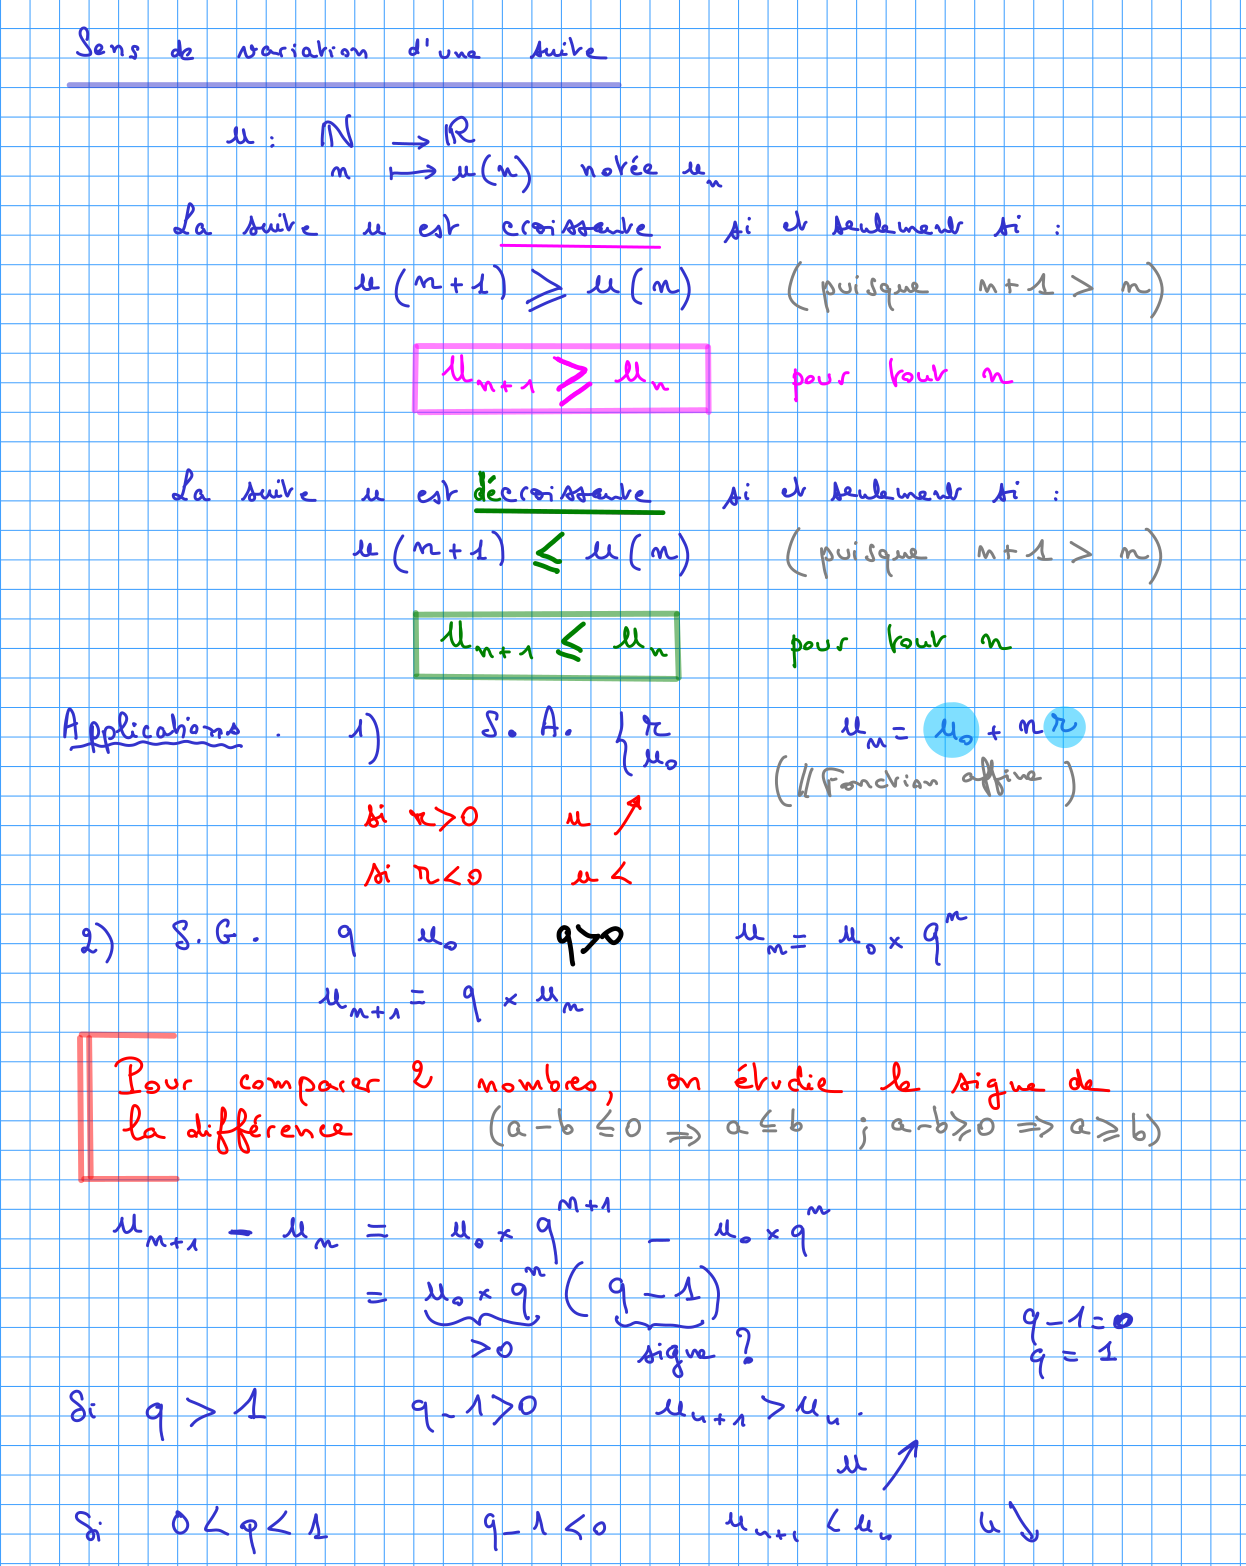 Sens de variation d'une suite
u : ℕ → ℝ
n ↦ u(n) notée uₙ
La suite u est croissante si et seulement si :
u(n+1) ⩾ u(n) (puisque n+1 > n)
uₙ₊₁ ⩾ uₙ pour tout n
La suite u est décroissante si et seulement si :
u(n+1) ⩽ u(n) (puisque n+1 > n)
uₙ₊₁ ⩽ uₙ pour tout n
Applications. 1) S.A. { r uₙ = u₀ + n r
u₀ (// Fonction affine)
si r>0 u ↗
si r<0 u <
2) S.G. q u₀ q>0 uₙ = u₀ × qⁿ
uₙ₊₁ = q × uₙ
Pour comparer 2 nombres, on étudie le signe de
la différence (a-b ≤ 0 ⇒ a ≤ b ; a-b ⩾ 0 ⇒ a ⩾ b)
uₙ₊₁ - uₙ = u₀ × qⁿ⁺¹ - u₀ × qⁿ
= u₀ × qⁿ (q - 1)
>0 signe ?
q-1=0
q = 1
Si q > 1 q-1>0 uₙ₊₁ > uₙ.
u ↗
Si 0<q<1 q-1<0 uₙ₊₁ < uₙ u ↘